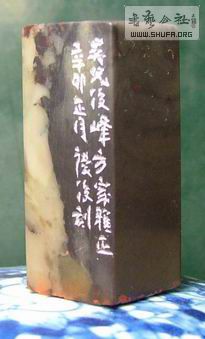 書法公社
WWW.SHUFA.ORG
吴兄後峰方家雅正
辛卯正月禊後刻